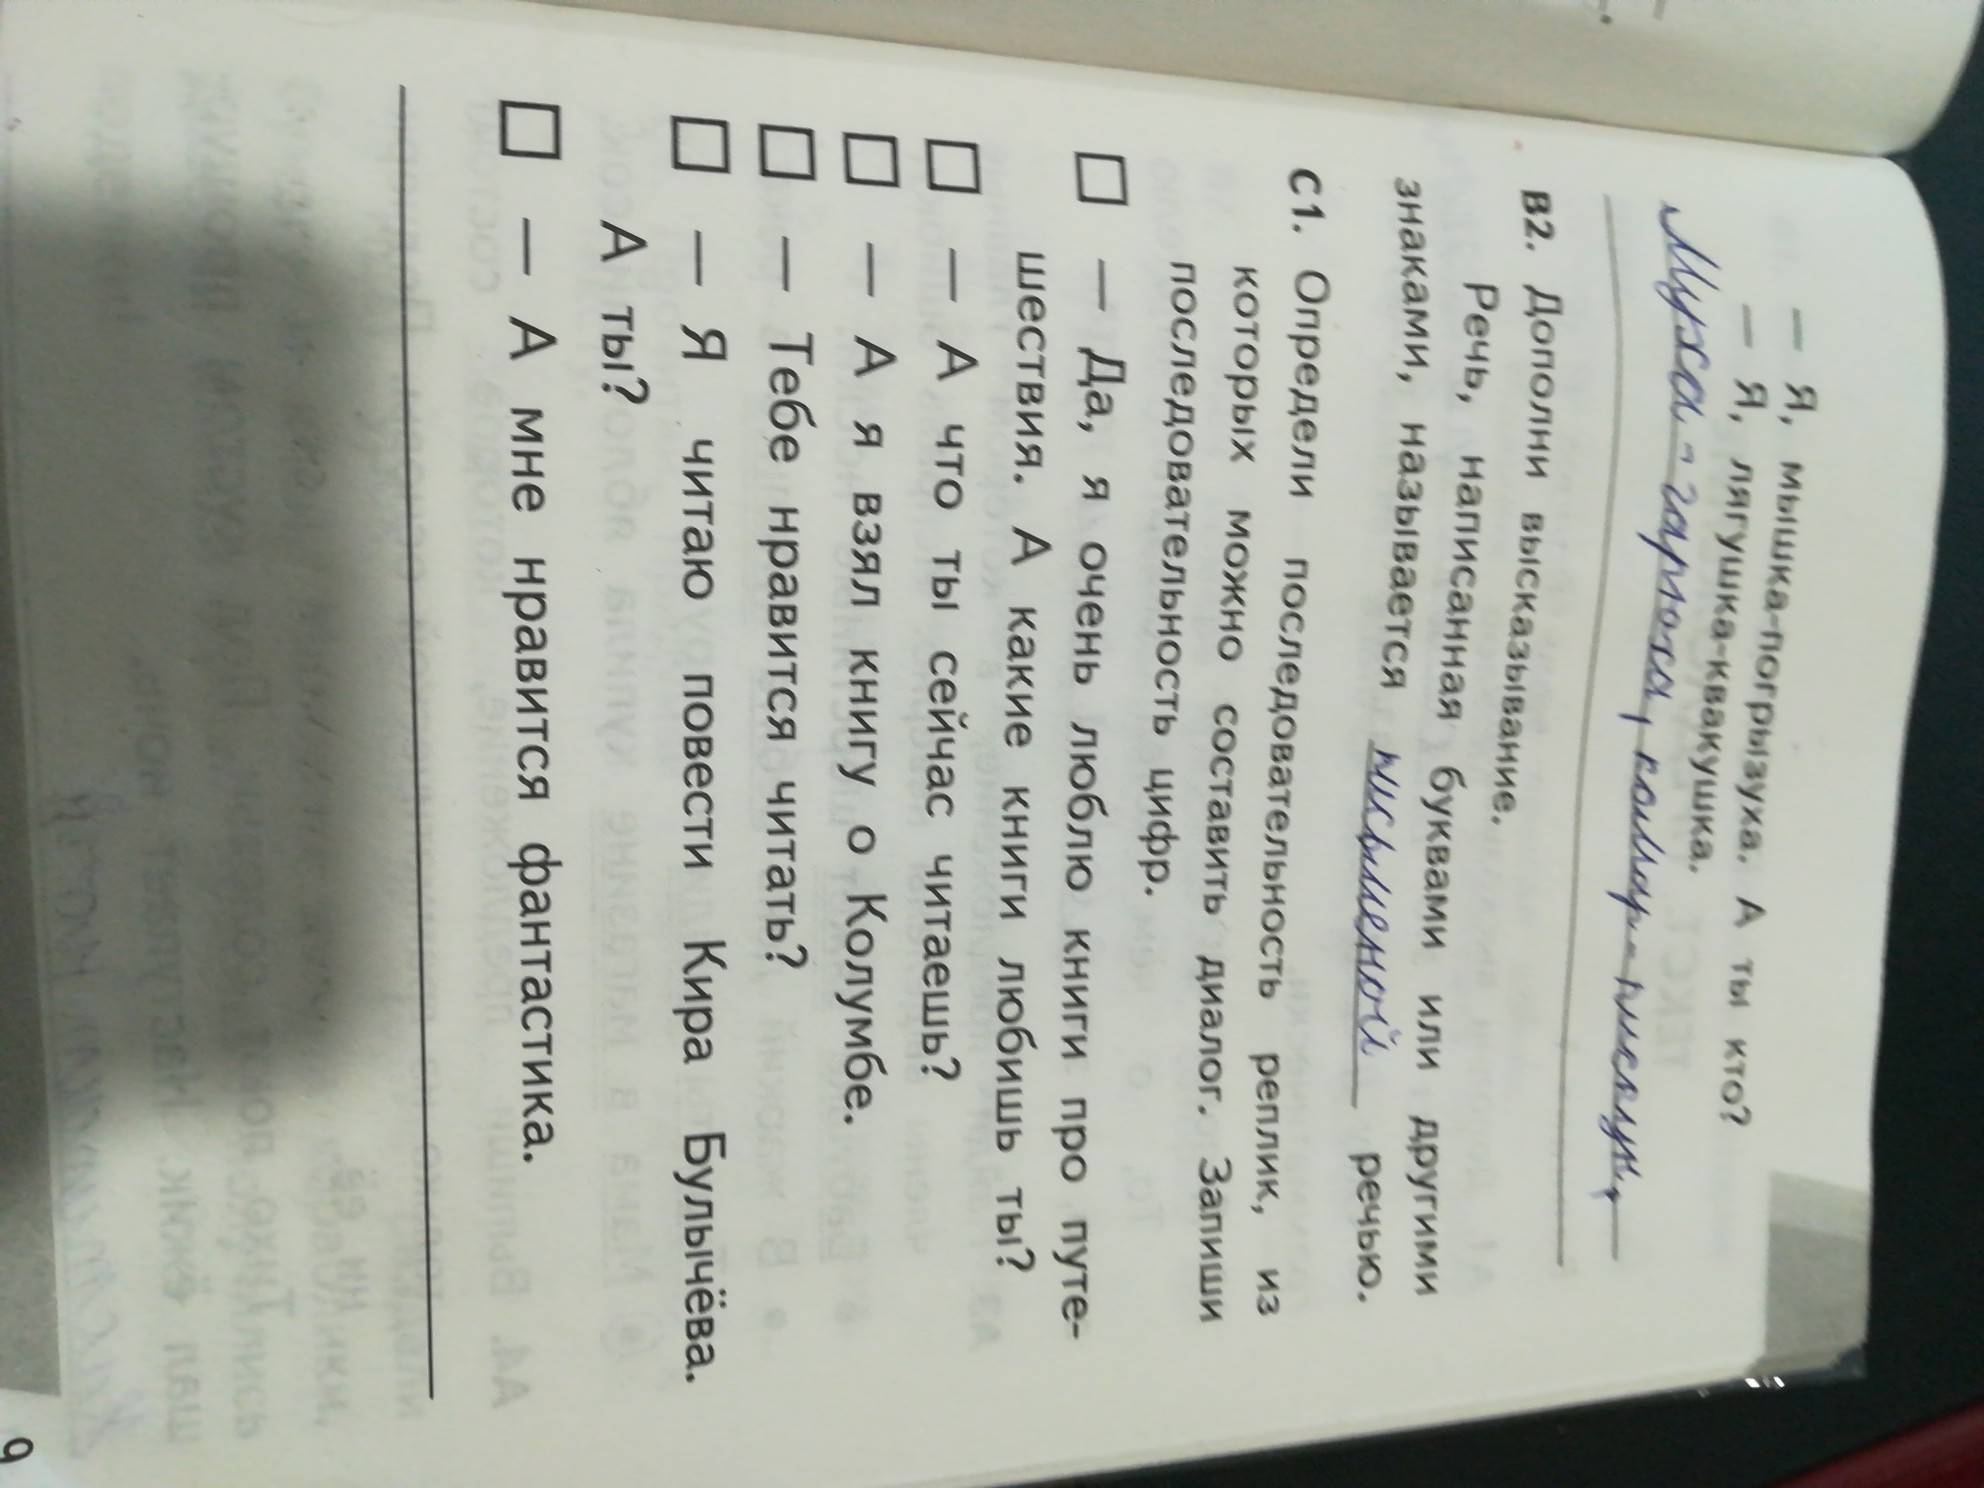 — Я, мышка-погрызуха. А ты кто?
— Я, лягушка-квакушка.
Муха-горюха, комар-пискун,
В2. Дополни высказывание.
Речь, написанная буквами или другими
знаками, называется письменной речью.
С1. Определи последовательность реплик, из
которых можно составить диалог. Запиши
последовательность цифр.
— Да, я очень люблю книги про путе-
шествия. А какие книги любишь ты?
— А что ты сейчас читаешь?
— А я взял книгу о Колумбе.
— Тебе нравится читать?
— Я читаю повести Кира Булычёва.
А ты?
— А мне нравится фантастика.
9